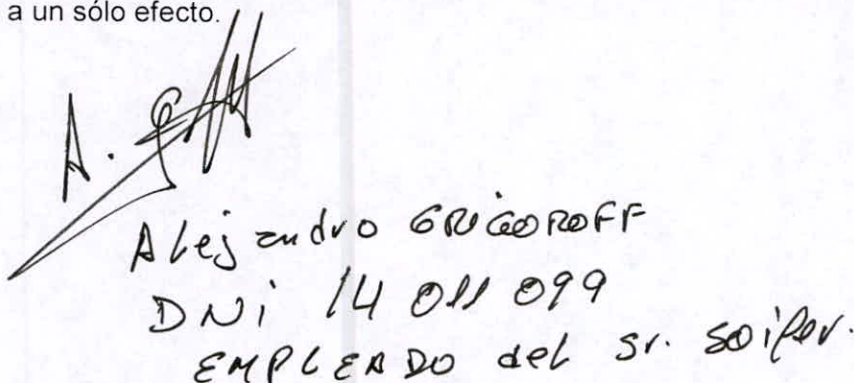 a un sólo efecto.
Alejandro GRIGOROFF
DNi 14 011 099
EMPLEADO del Sr. Soifer.